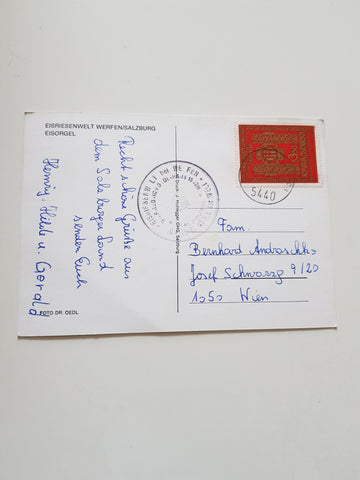 EISRIESENWELT WERFEN/SALZBURG
EISORGEL
Recht schöne Grüße aus
dem Salzburger Land
senden Euch
Henrig, Hilde u. Gerald
FOTO DR. OEDL
5440
Fam.
Bernhard Androschko
Josef Schwarzg 9/20
1050 Wien